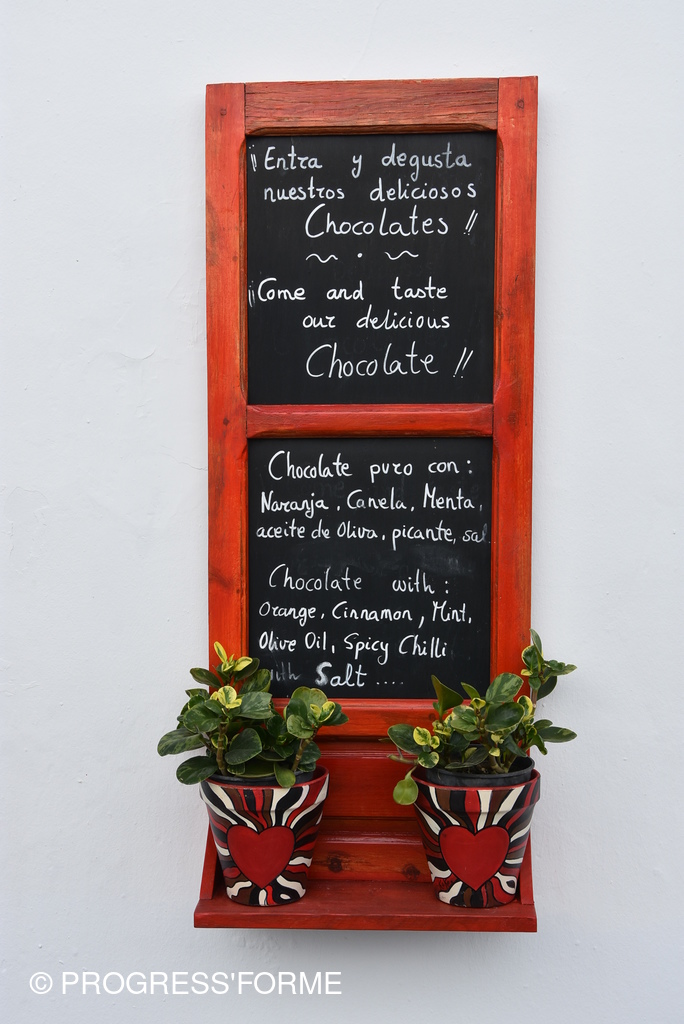 ¡¡Entra y degusta
nuestros deliciosos
Chocolates!!
¡¡Come and taste
our delicious
Chocolate!!
Chocolate puro con:
Naranja, Canela, Menta,
aceite de Oliva, picante, sal
Chocolate with:
Orange, Cinnamon, Mint,
Olive Oil, Spicy Chilli
with Salt....
© PROGRESS'FORME